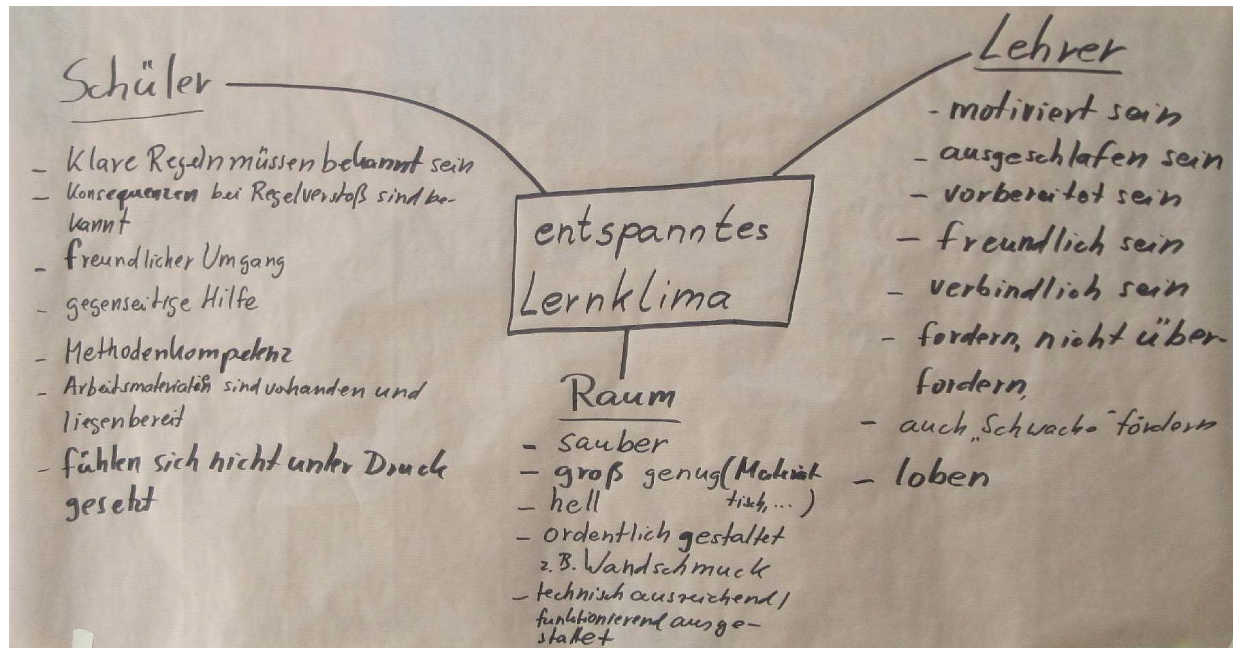 Schüler
- Klare Regeln müssen bekannt sein
- Konsequenzen bei Regelverstoß sind be-
kannt
- freundlicher Umgang
- gegenseitige Hilfe
- Methodenkompetenz
- Arbeitsmaterialien sind vorhanden und
liegen bereit
- fühlen sich nicht unter Druck
gesetzt
entspanntes
Lernklima
Raum
- sauber
- groß genug (Material
tisch, ...)
- hell
- ordentlich gestaltet
z.B. Wandschmuck
- technisch ausreichend /
funktionierend ausge-
stattet
Lehrer
- motiviert sein
- ausgeschlafen sein
- vorbereitet sein
- freundlich sein
- verbindlich sein
- fordern, nicht über-
fordern,
- auch „Schwache" fördern
- loben